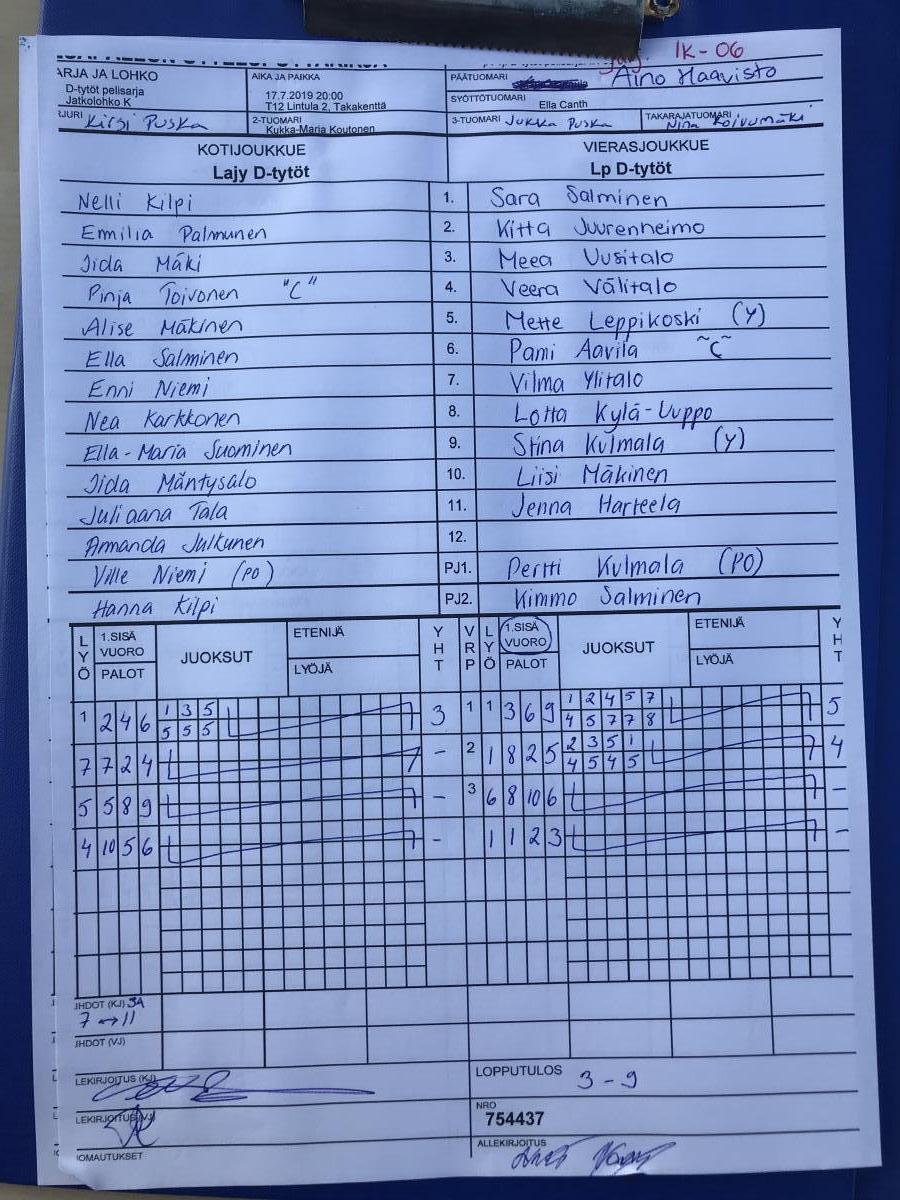 Jky. IK-06
ARJA JA LOHKO
D-tytöt pelisarja
Jatkolohko K
AIKA JA PAIKKA
17.7.2019 20:00
T12 Lintula 2, Takakenttä
PÄÄTUOMARI Aino Haavisto
SYÖTTÖTUOMARI
Ella Canth
RJURI Kirsi Puska
2-TUOMARI
Kukka-Maria Koutonen
3-TUOMARI Jukka Puska
TAKARAJATUOMARI
Nina Koivumäki
KOTIJOUKKUE VIERASJOUKKUE
Lajy D-tytöt Lp D-tytöt
Nelli Kilpi 1. Sara Salminen
Emilia Palmunen 2. Kitta Juurenheimo
Iida Mäki 3. Meea Uusitalo
Pinja Toivonen "C" 4. Veera Välitalo
Alise Mäkinen 5. Mette Leppikoski (Y)
Ella Salminen 6. Pami Aavila "C"
Enni Niemi 7. Vilma Ylitalo
Nea Karkkonen 8. Lotta Kylä-Uuppo
Ella-Maria Suominen 9. Stina Kulmala (Y)
Iida Mäntysalo 10. Liisi Mäkinen
Juliaana Tala 11. Jenna Harteela
Amanda Julkunen 12.
Ville Niemi (PO) PJ1. Pertti Kulmala (PO)
Hanna Kilpi PJ2. Kimmo Salminen
LYÖ 1.SISÄ VUORO PALOT JUOKSUT ETENIJÄ LYÖJÄ YHT VRP LYÖ 1.SISÄ VUORO PALOT JUOKSUT ETENIJÄ LYÖJÄ YHT
1 2 4 6 1 3 5 3 1 1 3 6 9 1 2 4 5 7 5
5 5 5 4 5 7 7 8
7 7 2 4 - 2 1 8 2 5 2 3 5 1 4
4 5 4 5
5 5 8 9 - 3 6 8 10 6 -
4 10 5 6 - 1 1 2 3 -
IHDOT (KJ) 3A
7 ↔ 11
IHDOT (VJ)
LEKIRJOITUS (KJ)
LOPPUTULOS 3 - 9
LEKIRJOITUS (VJ)
NRO
754437
IOMAUTUKSET
ALLEKIRJOITUS